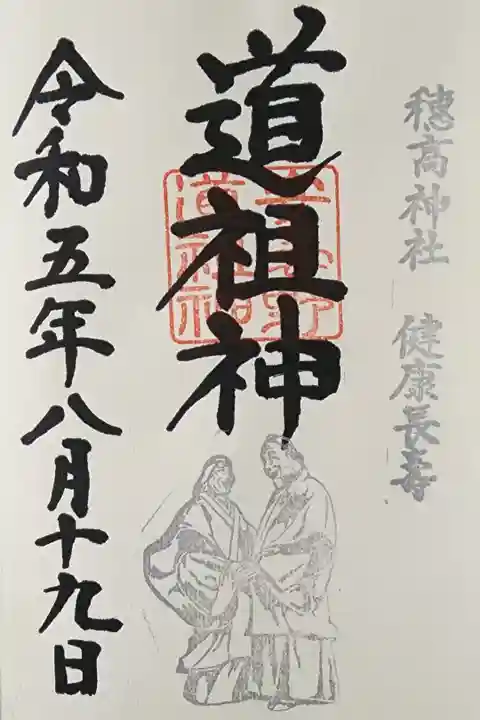 穂高神社 健康長寿
道祖神
令和五年八月十九日